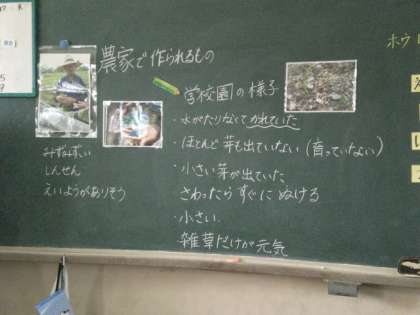 農家で作られるもの
みずみずしい
しんせん
えいようがありそう
学校園の様子
・水がたりなくてかれていた
・ほとんど芽も出ていない(育っていない)
・小さい芽が出ていた
さわったらすぐにぬける
・小さい
雑草だけが元気
ホウ